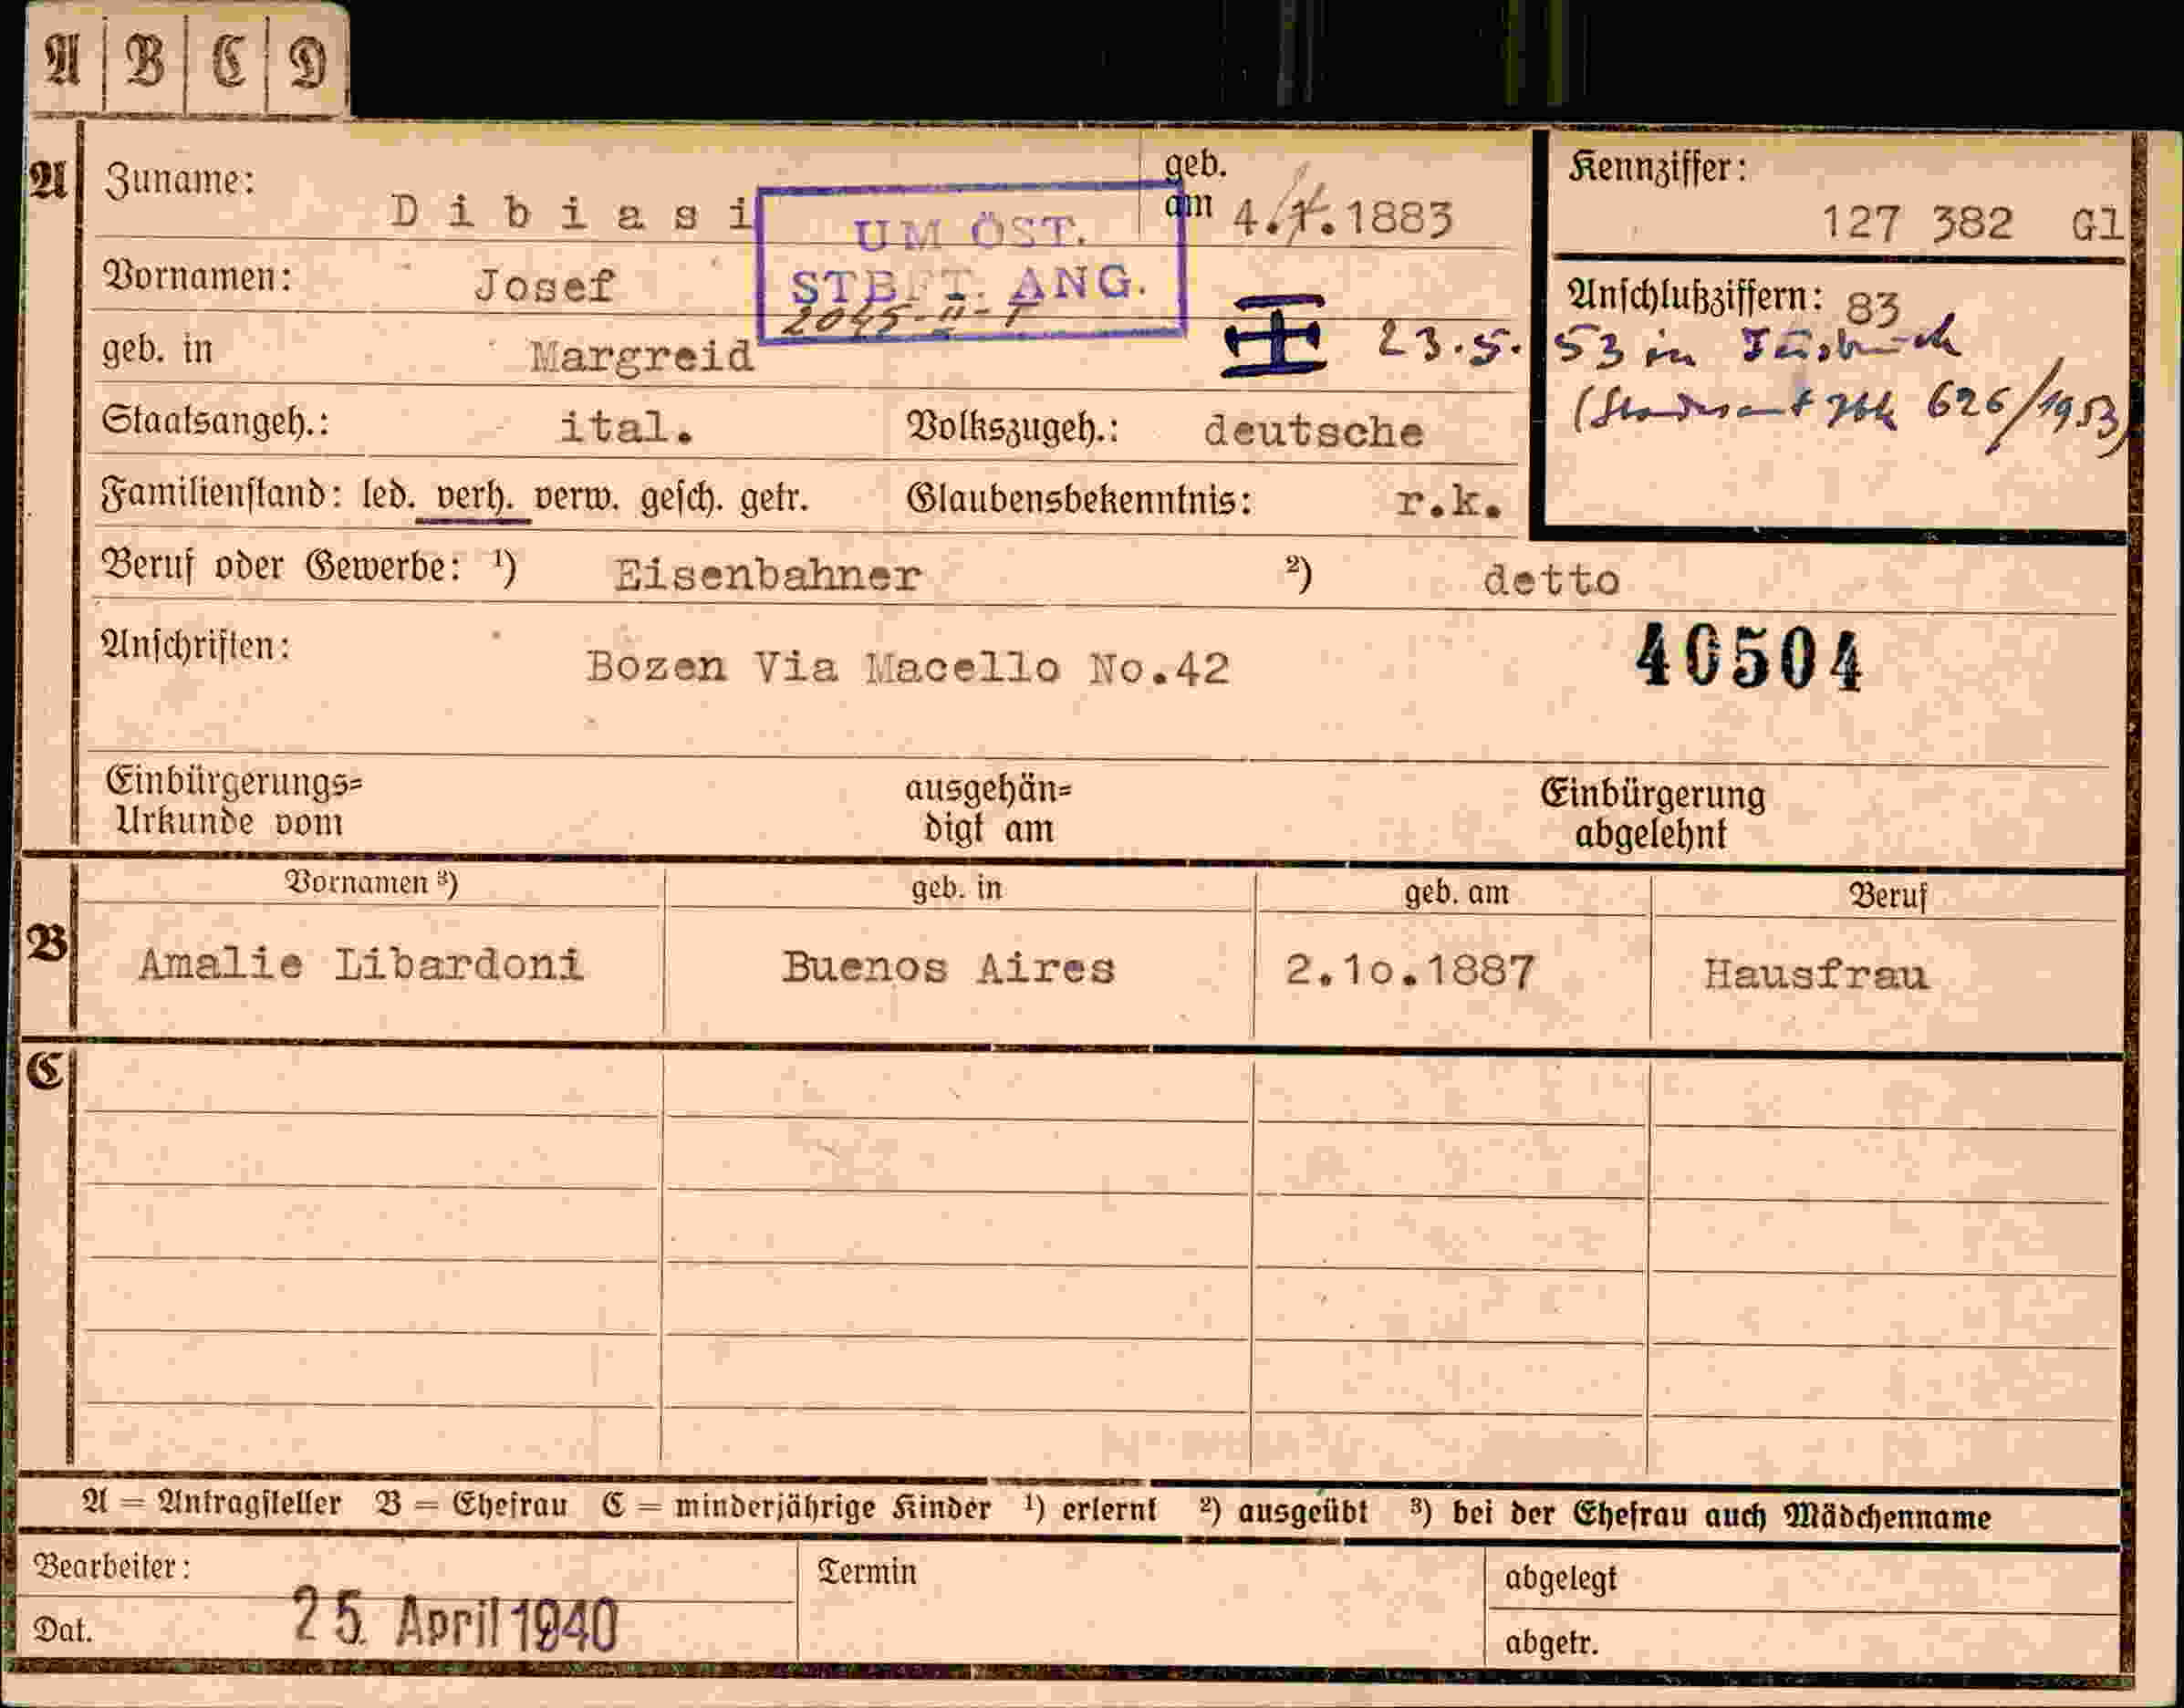 A B C D
A Zuname: Dibiasi geb. am 4. .1883 Kennziffer: 127 382 Gl
UM ÖST.
Vornamen: Josef STBFT. ANG. Anschlußziffern: 83
2045-II-
geb. in Margreid 23.5.53 in Innsbruck
(Standesamt Ibk 626/1953)
Staatsangeh.: ital. Volkszugeh.: deutsche
Familienstand: led. verh. verw. gesch. getr. Glaubensbekenntnis: r.k.
Beruf oder Gewerbe: ¹) Eisenbahner ²) detto
Anschriften: Bozen Via Macello No.42 40504
Einbürgerungs= ausgehän= Einbürgerung
Urkunde vom digt am abgelehnt
Vornamen ³) geb. in geb. am Beruf
B Amalie Libardoni Buenos Aires 2.1o.1887 Hausfrau
C
A = Antragsteller B = Ehefrau C = minderjährige Kinder ¹) erlernt ²) ausgeübt ³) bei der Ehefrau auch Mädchenname
Bearbeiter: Termin abgelegt
Dat. 25. April 1940 abgetr.